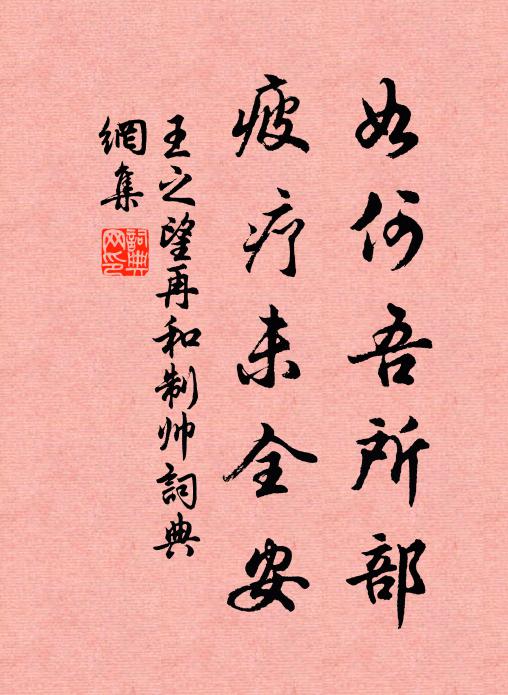 如何吾所部
疲疗未全安
王之望再和制帅詞典
網集
詞典
网印